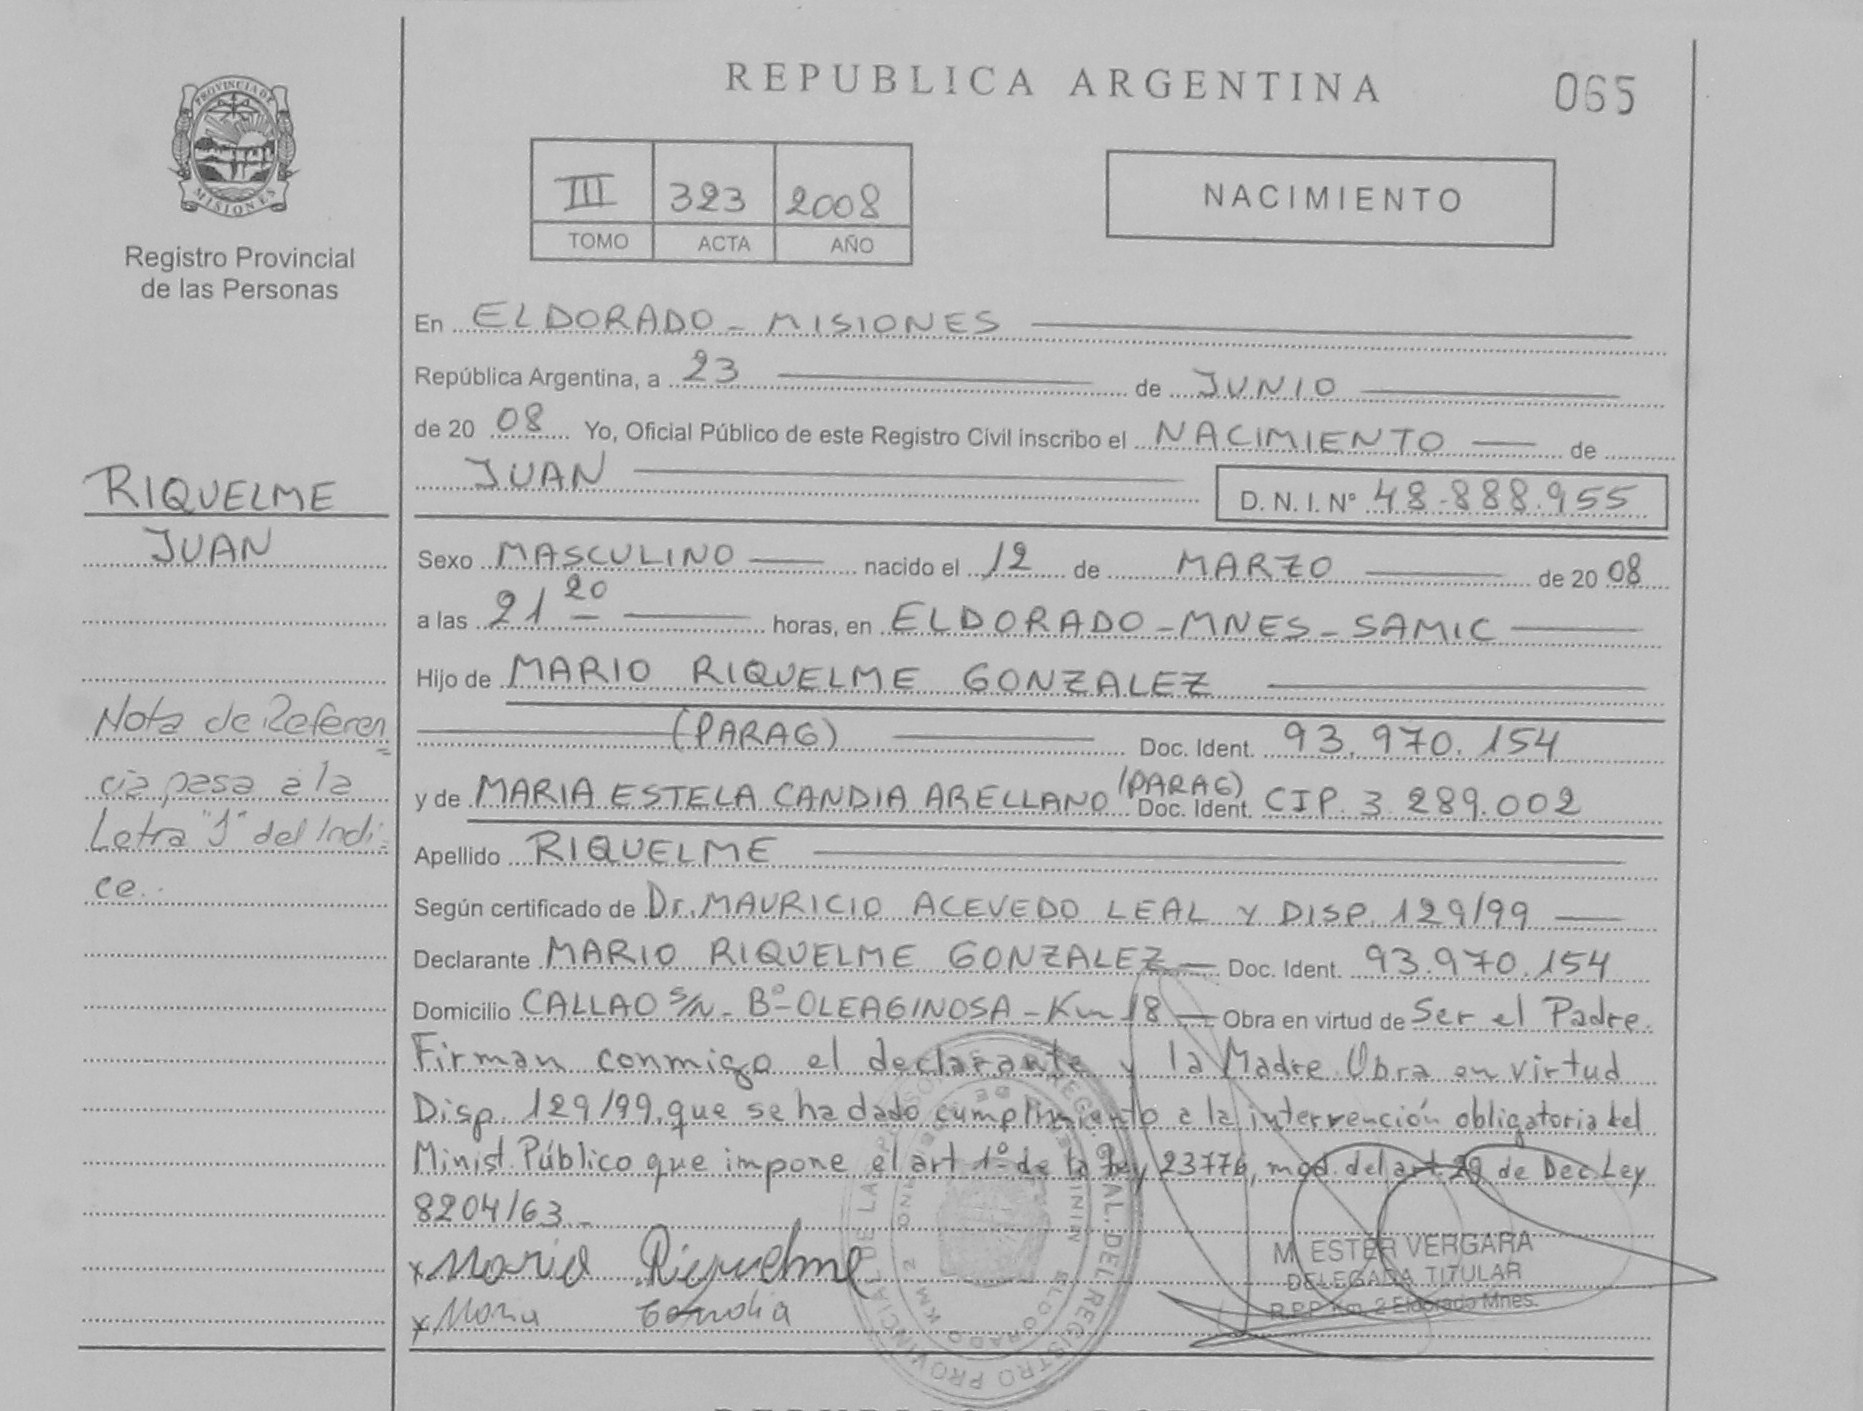 REPUBLICA ARGENTINA
065
PROVINCIA DE
MISIONES
Registro Provincial
de las Personas
III 323 2008
TOMO ACTA AÑO
NACIMIENTO
En ELDORADO - MISIONES
República Argentina, a 23 de JUNIO
de 20 08 Yo, Oficial Público de este Registro Civil inscribo el NACIMIENTO de
JUAN D. N. I. Nº 48.888.955
RIQUELME
JUAN
Sexo MASCULINO nacido el 12 de MARZO de 20 08
a las 21 20 horas, en ELDORADO - MNES - SAMIC
Hijo de MARIO RIQUELME GONZALEZ
(PARAG) Doc. Ident. 93.970.154
y de MARIA ESTELA CANDIA ARELLANO (PARAG) Doc. Ident. CIP. 3 289.002
Apellido RIQUELME
Según certificado de Dr. MAURICIO ACEVEDO LEAL Y DISP. 129/99
Declarante MARIO RIQUELME GONZALEZ Doc. Ident. 93.970.154
Domicilio CALLAO S/N - Bº OLEAGINOSA - Km 18 Obra en virtud de Ser el Padre.
Firman conmigo el declarante y la Madre. Obra en virtud
Disp. 129/99, que se ha dado cumplimiento a la intervención obligatoria del
Minist. Público que impone el art 1º de la ley 23776, mod. del art. 29 de Dec. Ley
8204/63 -
x Mario Riquelme
x Maria Candia
Nota de Referen
cia pasa a la
Letra "J" del Indi-
ce.
M. ESTER VERGARA
DELEGADA TITULAR
R.P.P. Km. 2 Eldorado Mnes.
GRAL. DEL REGISTRO PROVINCIAL DE LAS
ELDORADO KM 2